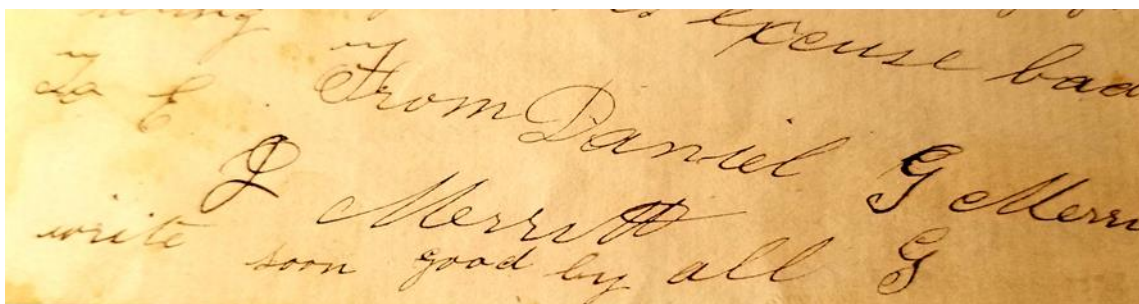 excuse bad
From Daniel G Merri
To E J Merritt
write soon good by all G